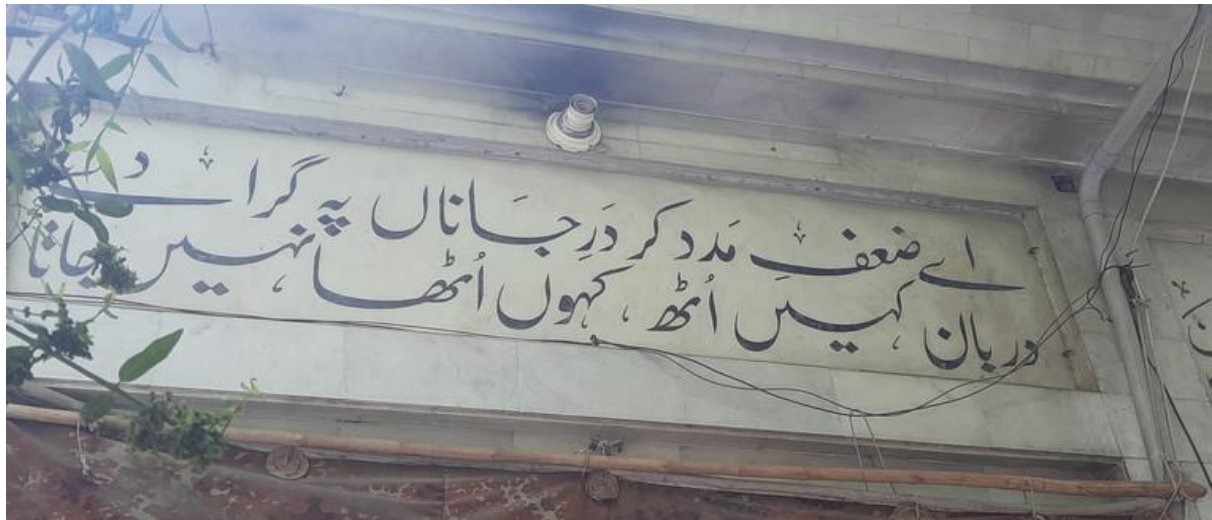 اے ضعفِ مَدد کر دَرِ جَاناں پہ گرا دے
دربان کہیں اُٹھ ، کہوں اُٹھا نہیں جاتا